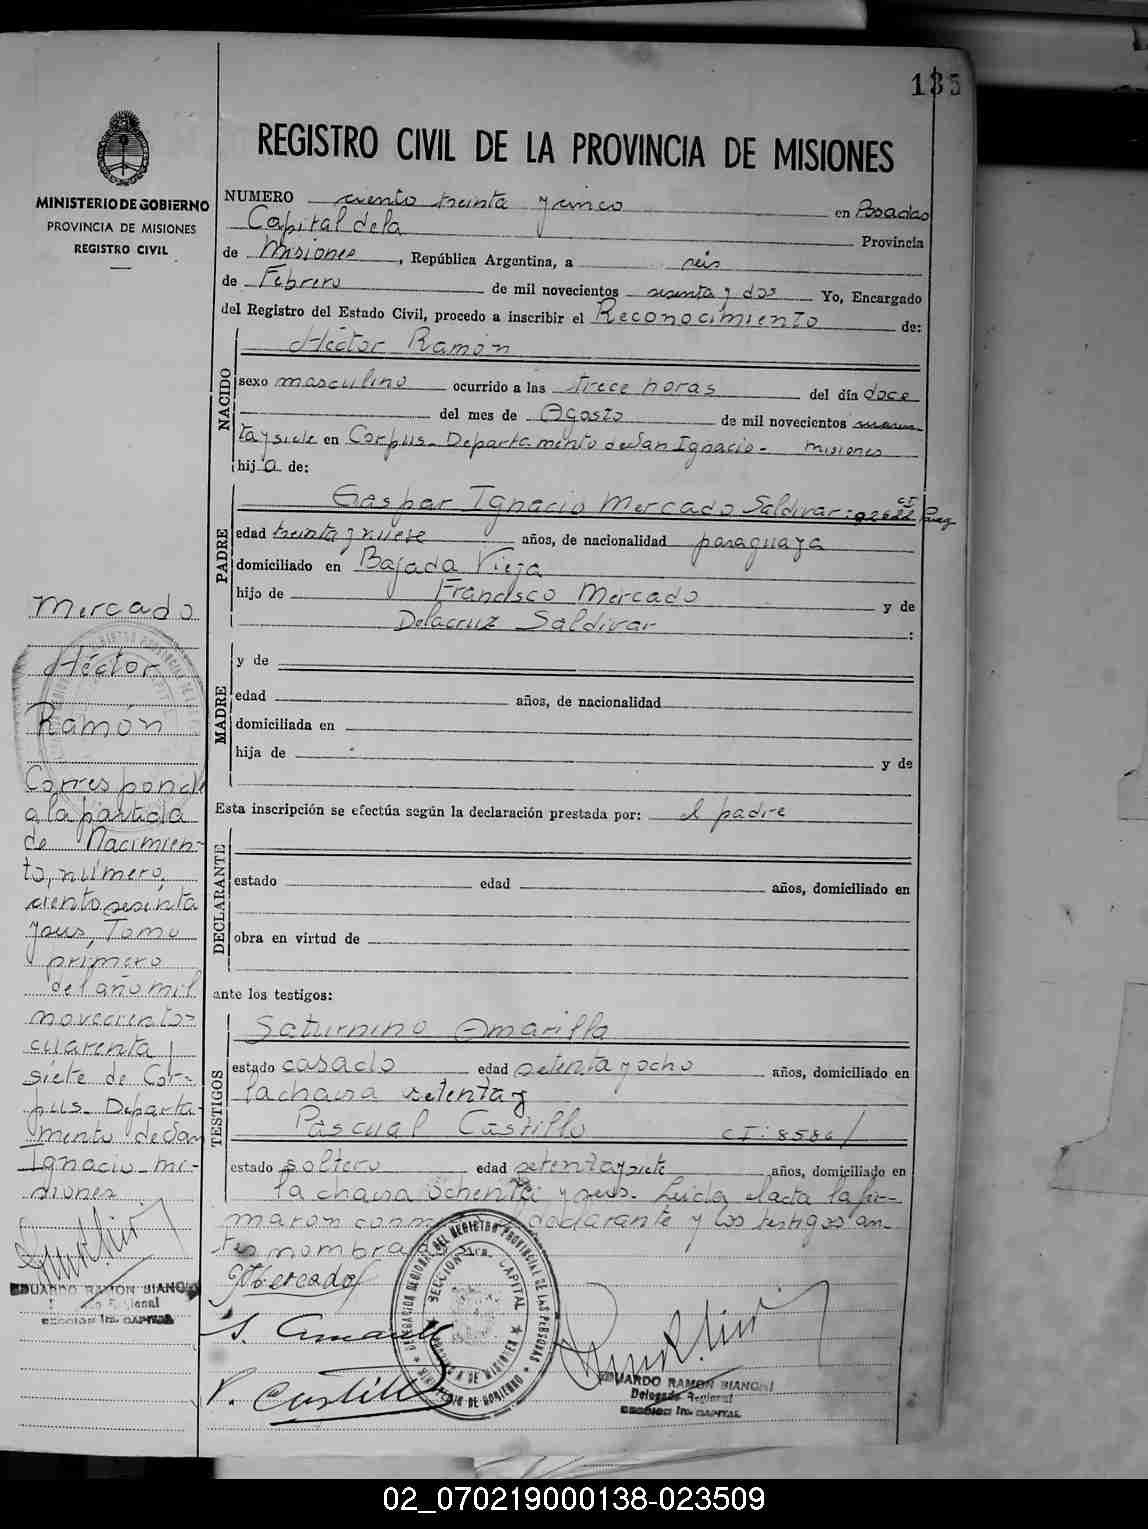 135
REGISTRO CIVIL DE LA PROVINCIA DE MISIONES
MINISTERIO DE GOBIERNO
PROVINCIA DE MISIONES
REGISTRO CIVIL
NUMERO ciento treinta y cinco en Posadas
Capital de la Provincia
de Misiones, República Argentina, a seis
de Febrero de mil novecientos sesenta y dos Yo, Encargado
del Registro del Estado Civil, procedo a inscribir el Reconocimiento de:
NACIDO
Héctor Ramón
sexo masculino ocurrido a las trece horas del día doce
del mes de Agosto de mil novecientos cuaren
ta y siete en Corpus- Departamento de San Ignacio- Misiones
hijo de:
PADRE
Gaspar Ignacio Mercado Saldivar: C.I.
edad treinta y nueve años, de nacionalidad paraguaya
domiciliado en Bajada Vieja
hijo de Francisco Mercado y de
Delacruz Saldivar :
MADRE
y de
edad años, de nacionalidad
domiciliada en
hija de y de
Esta inscripción se efectúa según la declaración prestada por: el padre
DECLARANTE
estado edad años, domiciliado en
obra en virtud de
ante los testigos:
TESTIGOS
Saturnino Amarilla
estado casado edad setenta y ocho años, domiciliado en
la chacra setenta y
Pascual Castillo CI: 8586/
estado soltero edad setenta y siete años, domiciliado en
la chacra ochenta y seis. Leida el acta la fir-
maron conm declarante y los testigos an-
tes nombra
Mercado
S. Amarilla
P. Castillo
DELEGACION REGIONAL DEL REGISTRO PROVINCIAL DE LAS PERSONAS
SECCION 1ra. CAPITAL
MINISTERIO DE GOBIERNO
EDUARDO RAMON BIANCHI
Delegado Regional
SECCION 1ra. CAPITAL
Mercado
Héctor
Ramón
Corresponde
a la partida
de Nacimien-
to, número,
ciento sesenta
y seis, Tomo
primero
del año mil
novecientos
cuarenta y
siete de Cor-
pus- Departa-
mento de San
Ignacio- Mi-
siones
EDUARDO RAMON BIANCHI
Delegado Regional
SECCION 1ra. CAPITAL
02_070219000138-023509